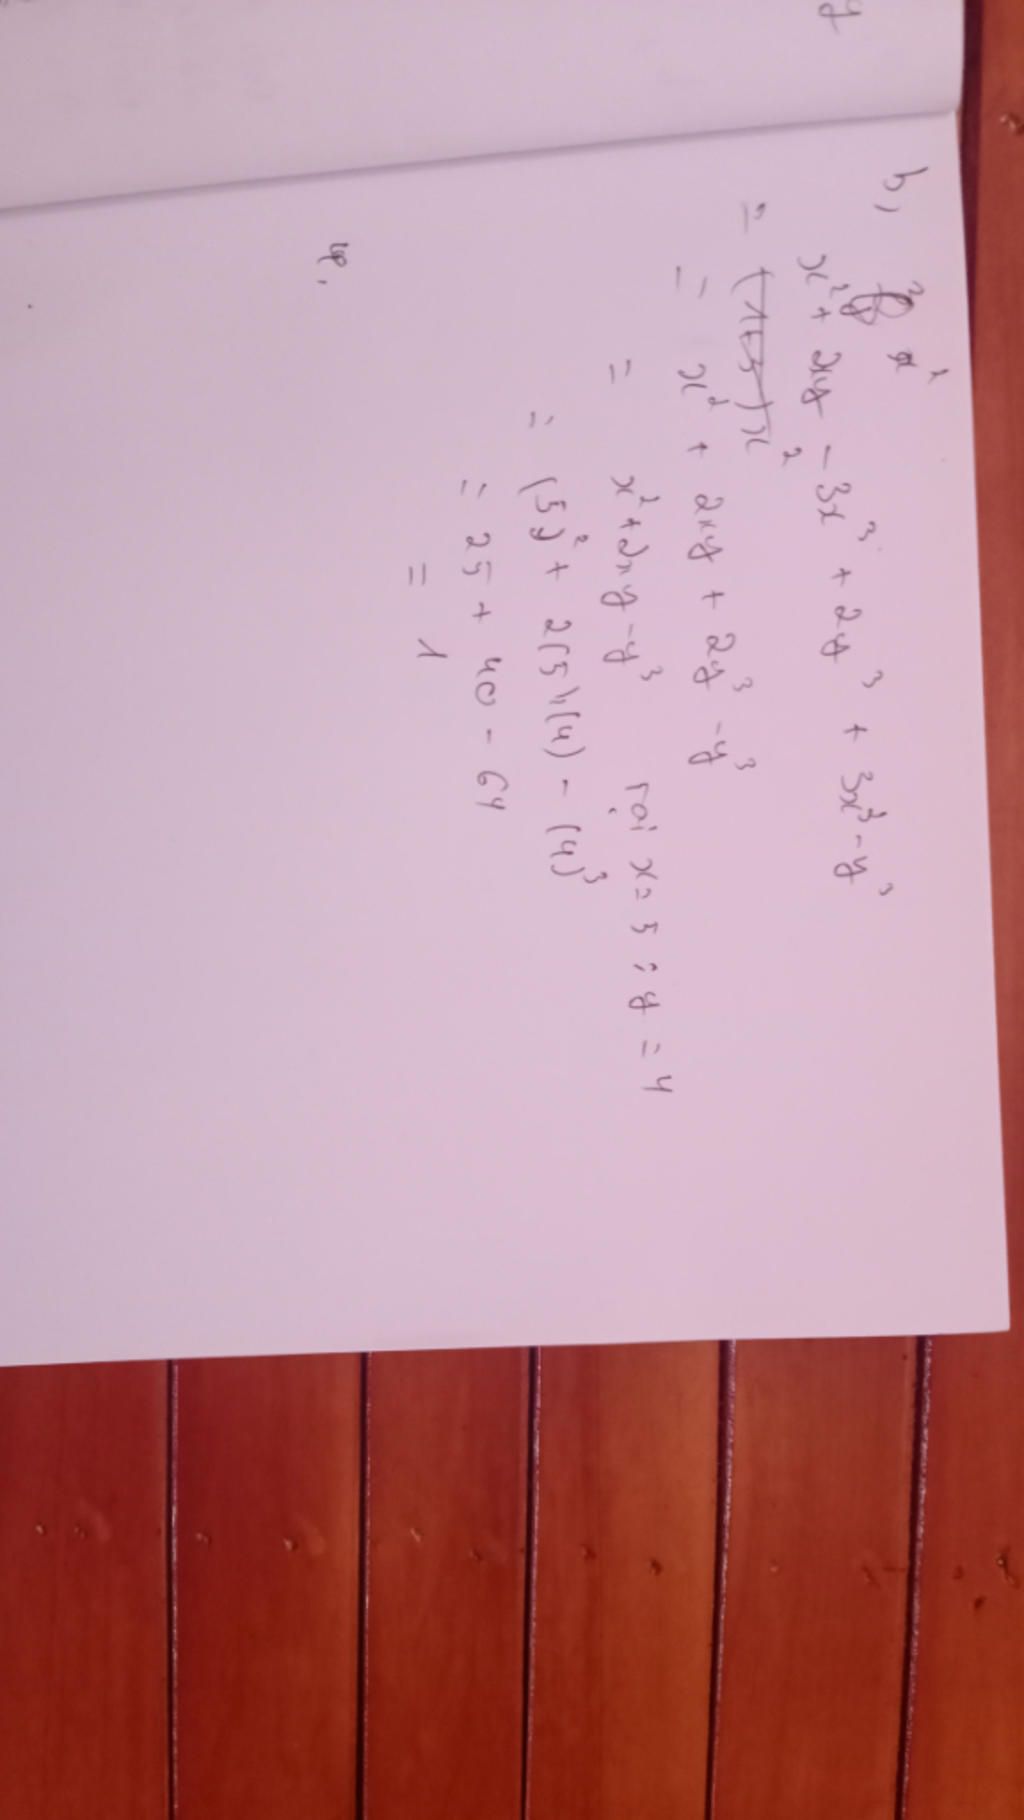 y
b,
x² + 2xy - 3x³ + 2y³ + 3x³ - y³
= x² + 2xy + 2y³ - y³
= x² + 2xy - y³ Tại x = 5 ; y = 4
= (5)² + 2(5).(4) - (4)³
= 25 + 40 - 64
= 1
4,